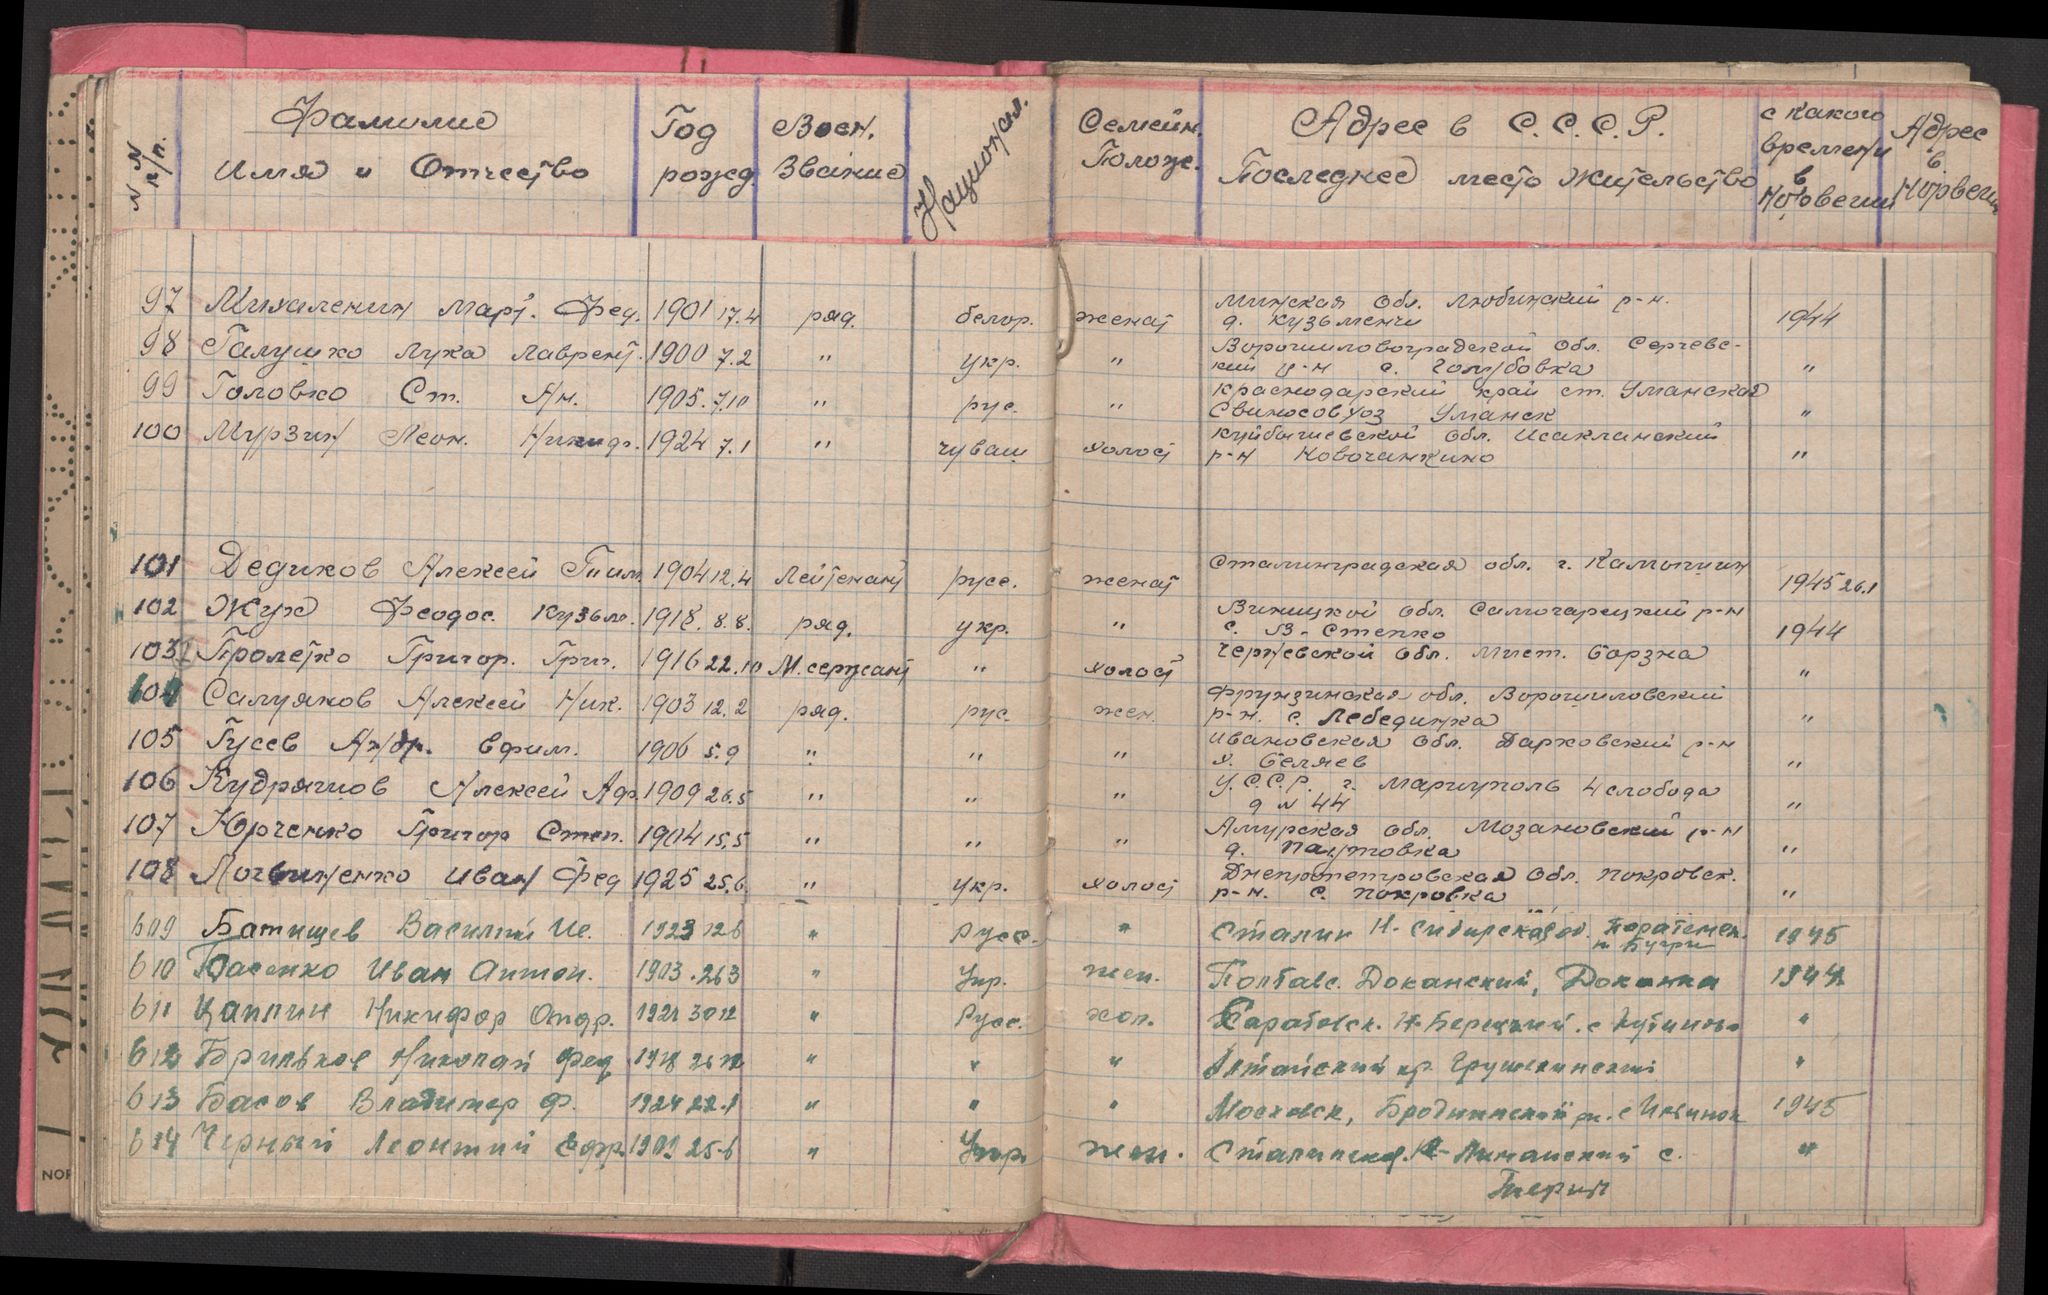 N N п/п. Фамилие Имя и Отчество Год рожд. Воен. Звание Национал. Семейн. Полож. Адрес в С.С.С.Р. Последнее место жительство с какого времени в Норвегии Адрес в Норвегии
97 Михаленин Март. Фед. 1901 17.4 ряд. белор. женат Минская обл. Любинский р-н. д. Кузьменчи 1944
98 Галушко Лука Лаврент. 1900 7.2 " укр. " Ворошиловоградской обл. Серчевский р-н с. Голубовка "
99 Головко Ст. Ан. 1905. 7.10 " рус. " Краснодарский край ст. Уманская Свиносовхоз Уманск "
100 Мурзин Леон. Никиф. 1924 7.1 " чуваш холост Куйбышевской обл. Исаклинский р-н Новочанкино "
101 Дедиков Алексей Тим. 1904 12.4 Лейтенант русс. женат Сталинградская обл. г. Камышин 1945 26.1
102 Жук Феодос. Кузьм. 1918. 8.8. ряд. укр. " Виницкой обл. Самочарецкий р-н с. В-Степко 1944
103 Пролетко Григор. Григ. 1916 22.10 М.сержант " холост Чернгевской обл. мист. Борзна "
104 Салуяков Алексей Ник. 1903 12.2 ряд. рус. жен. Фрунзинская обл. Ворошиловский р-н. с. Лебединка "
105 Гусев Андр. Ефим. 1906 5.9 " " " Ивановская обл. Дарковский р-н х. Беляев "
106 Кудряшов Алексей Аф. 1909 26.5 " " " У.С.С.Р. г. Мариуполь 4 слобода д N 44 "
107 Юрченко Григор Степ. 1904 15.5 " " " Амурская обл. Мозановский р-н д. Паутовка "
108 Логвиненко Иван Фед 1925 25.6 " укр. холост Днепропетровская обл. Покровск. р-н. с. Покровка "
609 Батищев Василий Ис. 1923 12 6 " Русс. " Сталин Н-Сибирская об. п. Бугри 1945
610 Басенко Иван Антон. 1903. 26 3 " Укр. жен. Полтавс. Диканский, Диканка 1944
611 Цаплин Никифор Андр. 1921 30 12 " Русс. хол. Саратовск. "
612 Брильков Николай Фед " " " Алтайский кр. Грушекинский "
613 Басов Владимер Ф. 1924 22.1 " " " Московск, Бродиинский рн. с Ильинск 1945
614 Черный Леонтий Ефр. 1909 25.6 " Укр. жен. Сталинская К-Лиманский с.